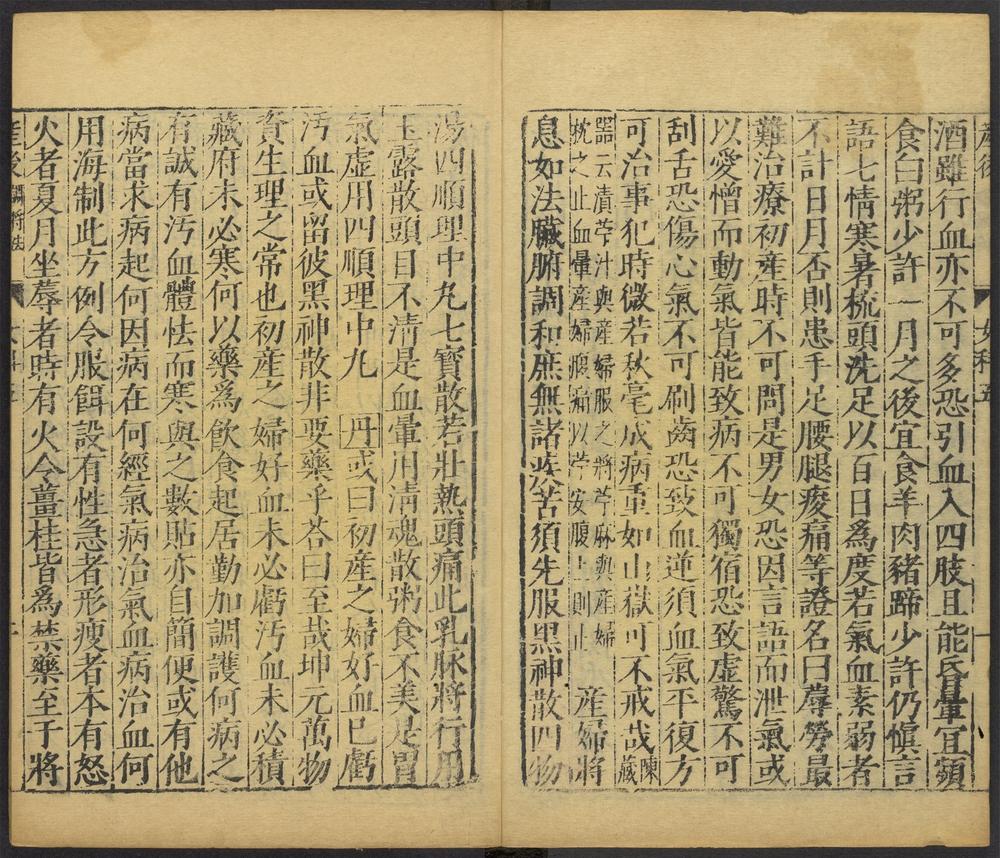 產後
女科五
一
酒雖行血亦不可多恐引血入四肢且能昏暈宜頻
食白粥少許一月之後宜食羊肉豬蹄少許仍慎言
語七情寒暑梳頭洗足以百日爲度若氣血素弱者
不計日月否則患手足腰腿痠痛等證名曰蓐勞最
難治療初產時不可問是男女恐因言語而泄氣或
以愛憎而動氣皆能致病不可獨宿恐致虛驚不可
刮舌恐傷心氣不可刷齒恐致血逆須血氣平復方
可治事犯時微若秋毫成病重如山嶽可不戒哉陳藏
器云漬苧汁與產婦服之將苧麻與產婦
枕之止血暈產婦腹痛以苧安腹上則止
產婦將
息如法臟腑調和庶無諸疾苦須先服黑神散四物
湯四順理中丸七寶散若壯熱頭痛此乳脉將行用
玉露散頭目不清是血暈用淸魂散粥食不美是胃
氣虛用四順理中丸 丹或曰初產之婦好血已虧
汚血或留彼黑神散非要藥乎荅曰至哉坤元萬物
資生理之常也初產之婦好血未必虧汚血未必積
藏府未必寒何以藥爲飲食起居勤加調護何病之
有誠有汚血體怯而寒與之數貼亦自簡便或有他
病當求病起何因病在何經氣病治氣血病治血何
用海制此方例令服餌設有性急者形瘦者本有怒
火者夏月坐蓐者時有火令薑桂皆爲禁藥至于將
產後調將法